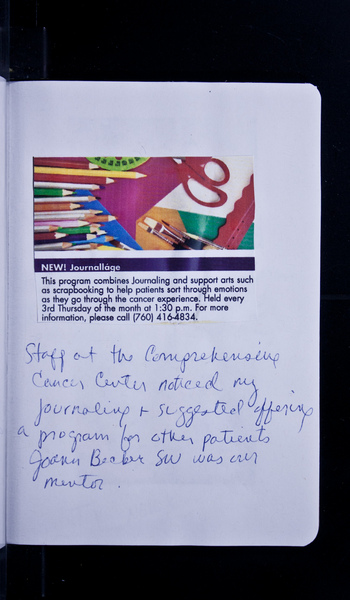 NEW! Journallàge
This program combines Journaling and support arts such
as scrapbooking to help patients sort through emotions
as they go through the cancer experience. Held every
3rd Thursday of the month at 1:30 p.m. For more
information, please call (760) 416-4834.
Staff at the Comprehensive
Cancer Center noticed my
journaling + suggested offering
a program for other patients
Joann SW was our
mentor.